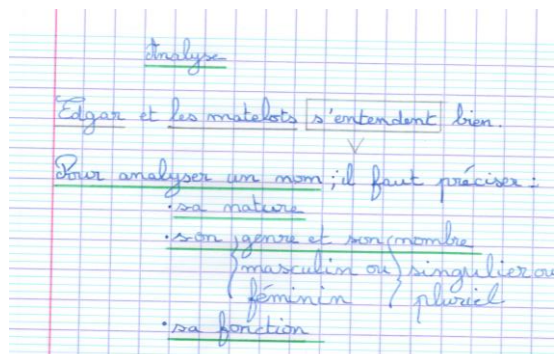 Analyse
Edgar et les matelots s'entendent bien.
V
Pour analyser un nom ; il faut préciser :
• sa nature
• son genre et son nombre
masculin ou singulier ou
féminin pluriel
• sa fonction